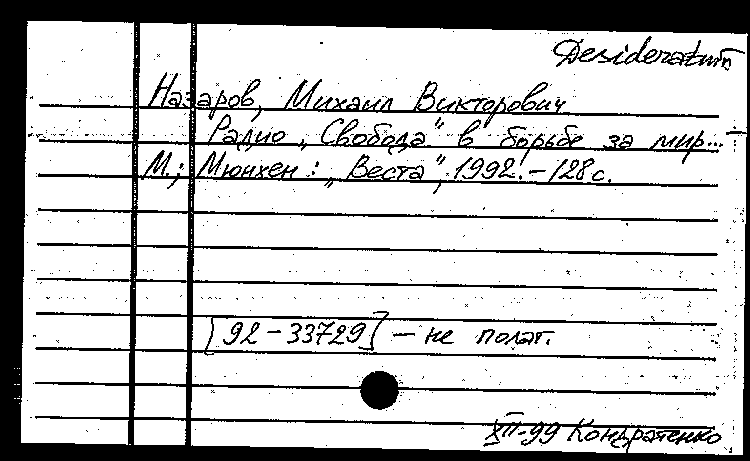 Desideratum
Назаров, Михаил Викторович
Радио „Свобода" в борьбе за мир...
М.; Мюнхен : „Веста", 1992. – 128 с.
[92 – 33729] – не полаг.
XII-99 Кондратенко